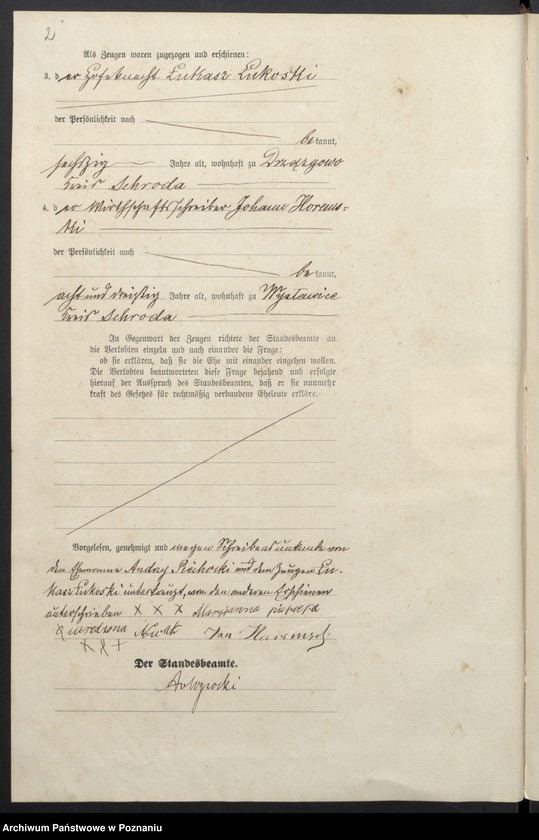 2
Als Zeugen waren zugezogen und erschienen:
3. der Hofeknecht Lukasz Lukoski
der Persönlichkeit nach
bekannt,
sechszig Jahre alt, wohnhaft zu Drzązgowo
Kreis Schroda
4. der Wirthschaftsschreiber Johann Horems-
ski
der Persönlichkeit nach
bekannt,
acht und dreißig Jahre alt, wohnhaft zu Wysławice
Kreis Schroda
In Gegenwart der Zeugen richtete der Standesbeamte an
die Verlobten einzeln und nach einander die Frage:
ob sie erklären, daß sie die Ehe mit einander eingehen wollen.
Die Verlobten beantworteten diese Frage bejahend und erfolgte
hierauf der Ausspruch des Standesbeamten, daß er sie nunmehr
kraft des Gesetzes für rechtmäßig verbundene Eheleute erkläre.
Vorgelesen, genehmigt und wegen Schreibensunkunde von
dem Ehemanne Andrzy Piechocki und dem Zeugen Lu-
kasz Lukoski unterkreuzt, von den anderen Erschienenen
unterschrieben X X X Maryanna
X Nowak Jan
X X +
Der Standesbeamte.
Archiwum Państwowe w Poznaniu